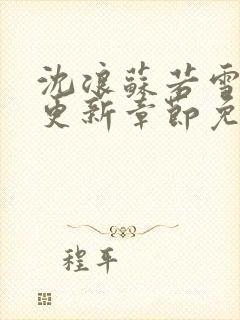 沈浪蘇若雪
更新章節免
程平